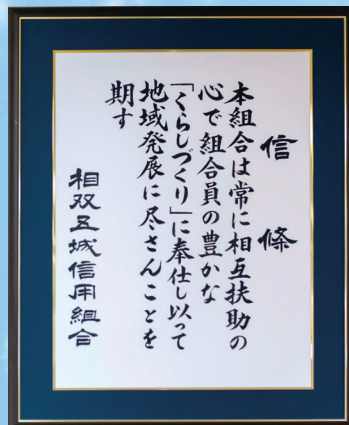 信條
本組合は常に相互扶助の
心で組合員の豊かな
「くらしづくり」に奉仕し以って
地域発展に尽さんことを
期す
相双五城信用組合